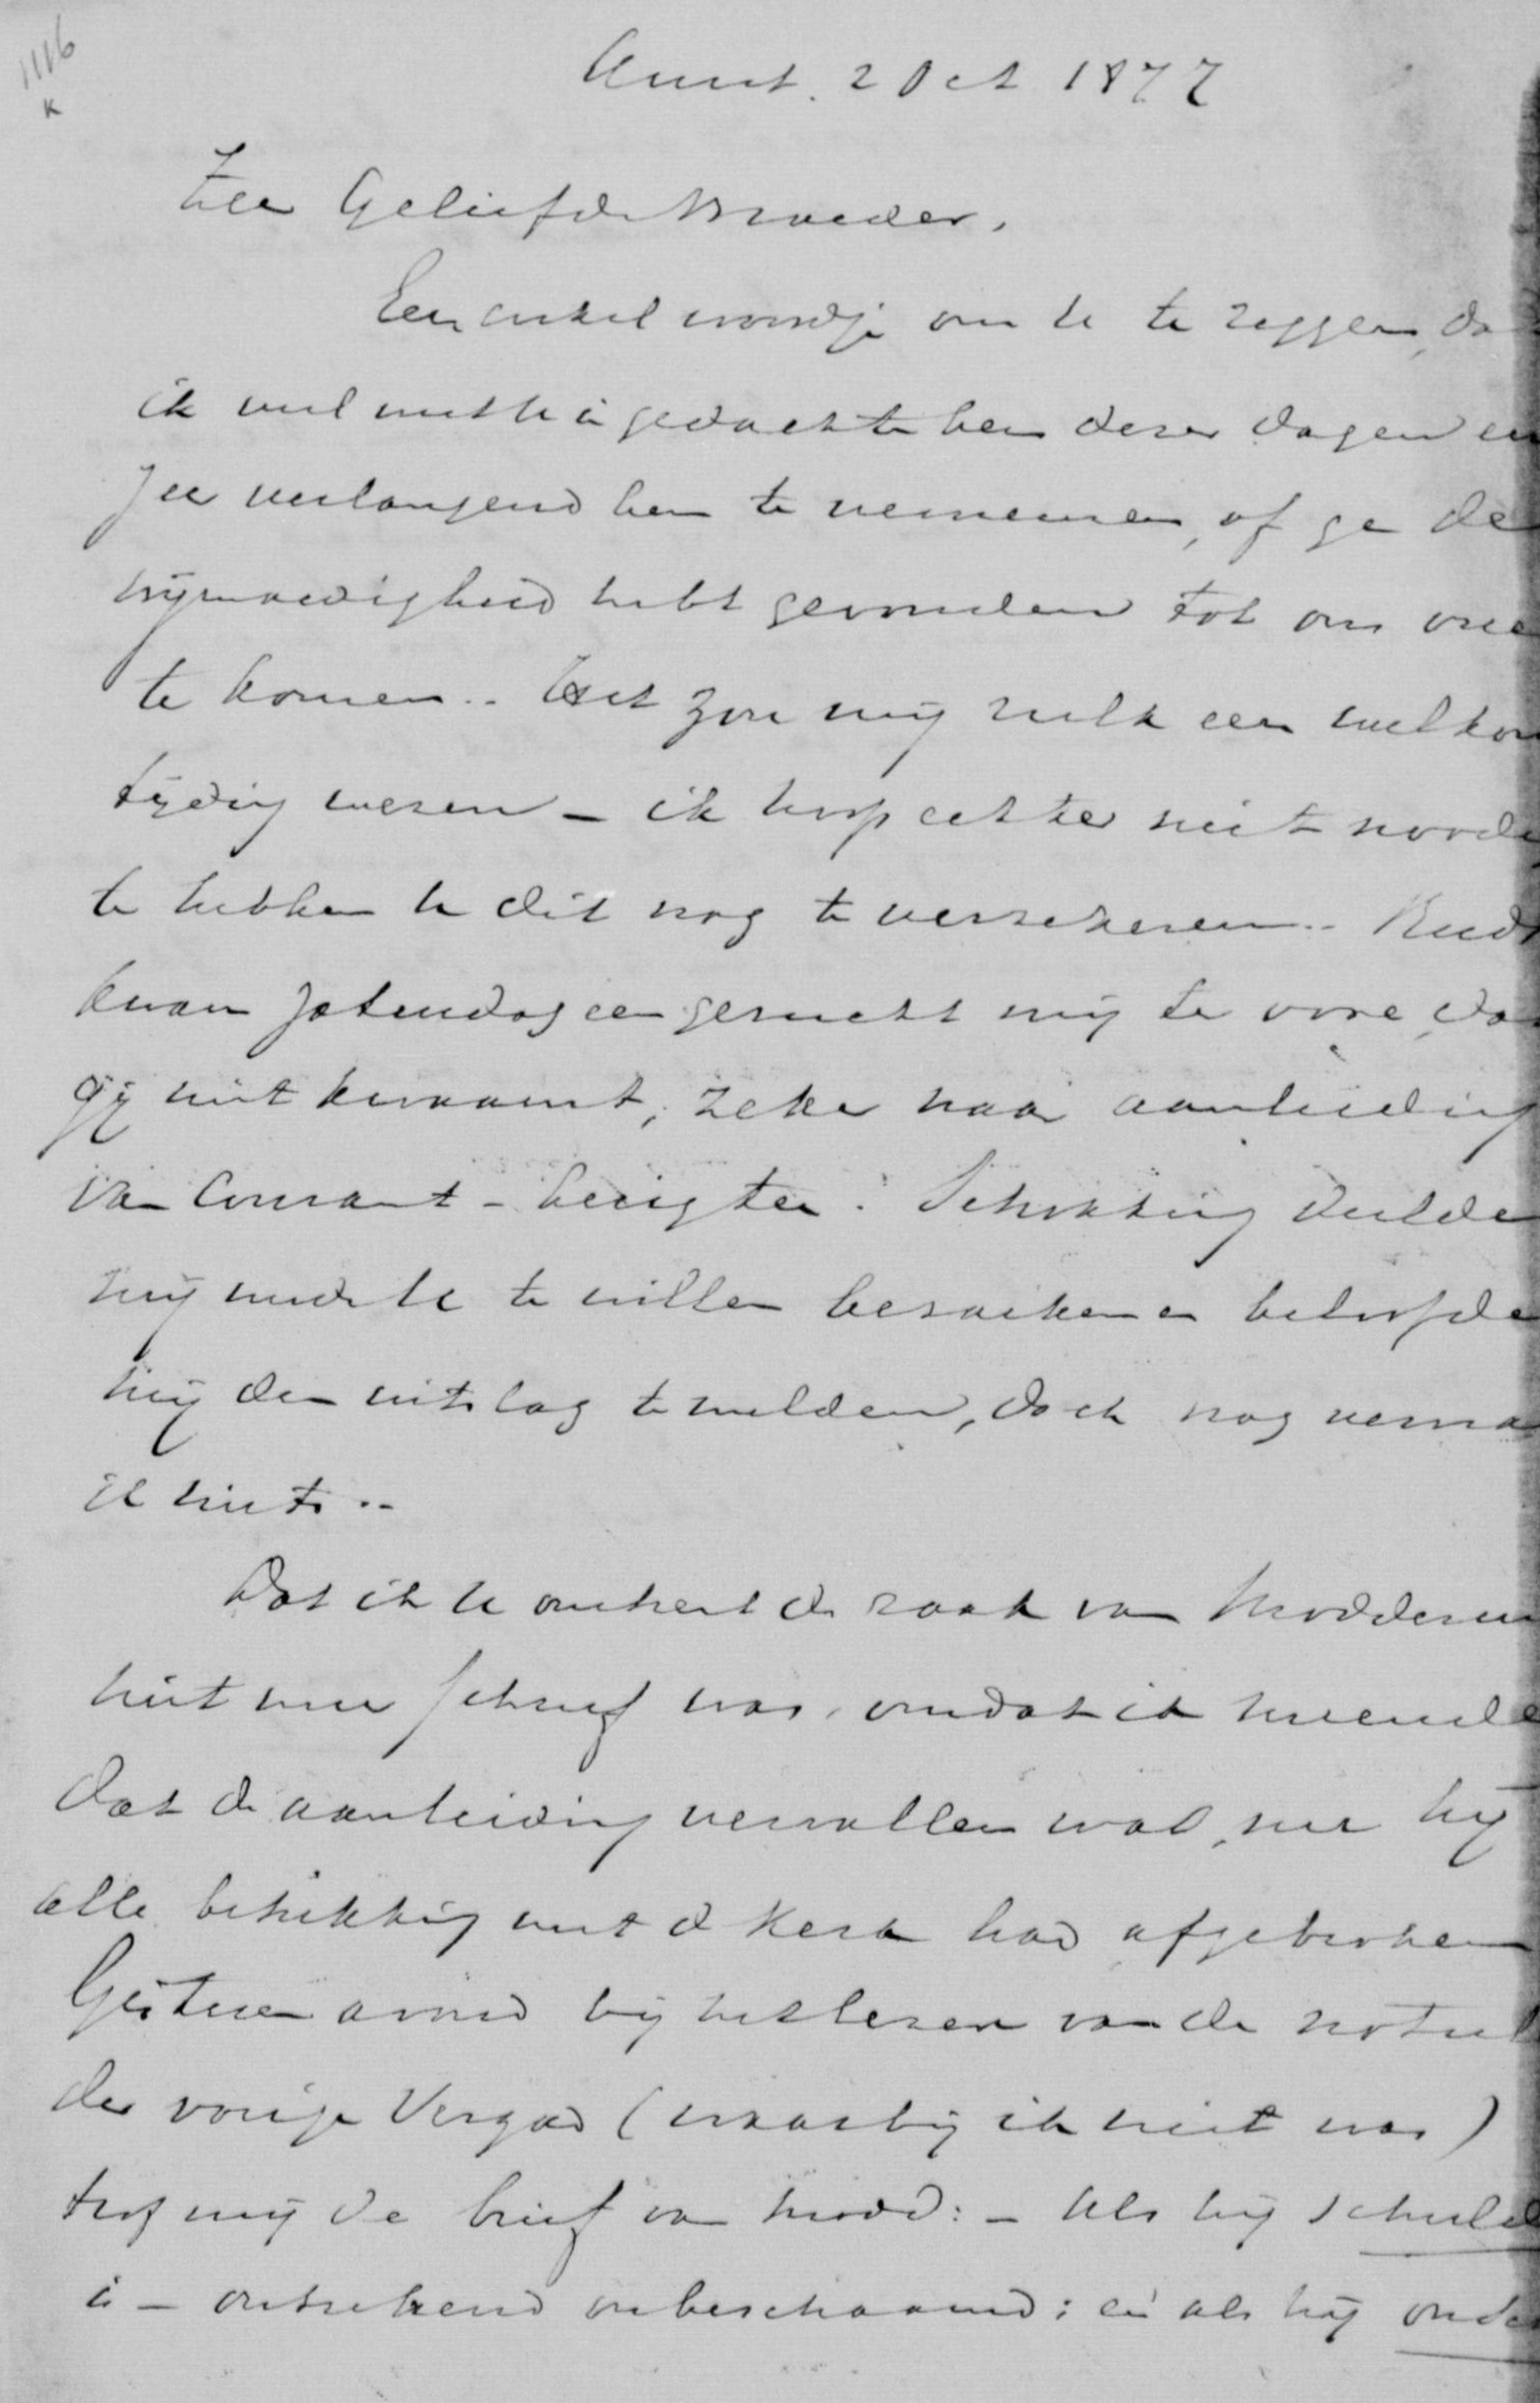 1116
K
Amst. 2 Oct 1877
Zeer Geliefde Broeder,
Een enkel woordje om U te zeggen, da
ik veel met U in gedachte ben dezer dagen en
zeer verlangend ben te vernemen, of ge de
vrijmoedigheid hebt gevonden tot ons over
te komen.. Het zou mij zulk een welkom
tijding wezen – ik hoop echter niet noodi
te hebben U dit nog te verzekeren..
kwam Zaterdag een gerucht mij te voren, da
gij niet kwaamt, zeker naar aanleiding
van Courant-berigten. Schokking deelde
mij mede U te willen bezoeken en beloofde
mij den uitslag te melden, doch nog verna
ik niets..
Dat ik U omtrent de zaak van Modderm
niet meer schreef was, omdat ik meende
dat de aanleiding vervallen was, nu hij
alle betrekking met de Kerk had afgebroken
Gisteren avond bij het lezen van de notul
der vorige Vergad (waarbij ik niet was)
trof mij de brief van Modd: – Als hij schuld
is – ontzettend onbeschaamd; en als hij onsc